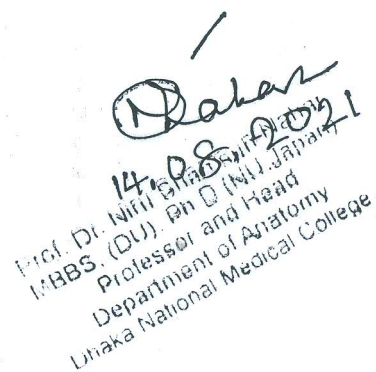 14.08.2021
Prof. Dr.
MBBS. (DU). Ph D (NU. Japan)
Professor and Head
Department of Anatomy
Dhaka National Medical College